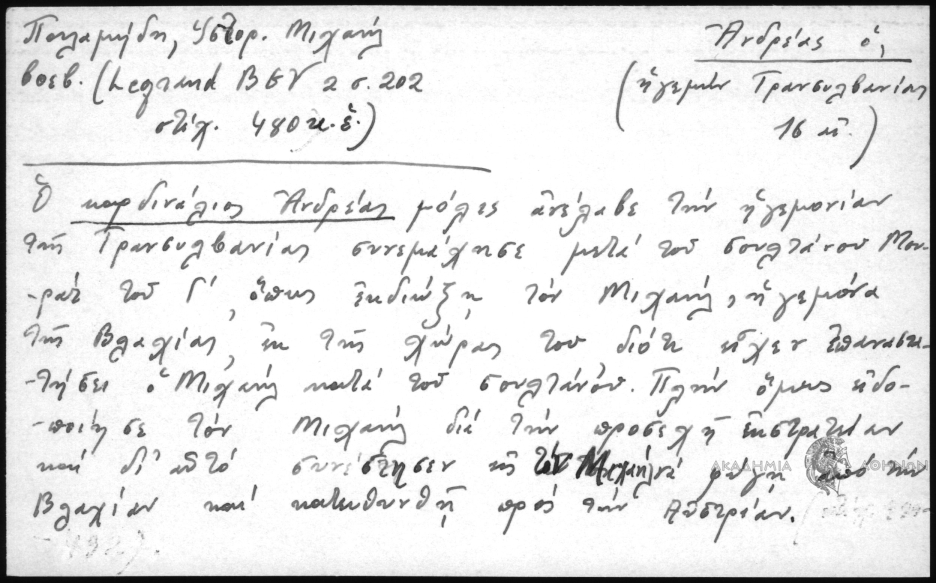 Παλαμήδη, Ἱστορ. Μιχαήλ
βοεβ. (Legrand BGV 2 σ. 202
στίχ. 480 κ.ἑ.)
Ἀνδρέας ὁ,
(ἡγεμών Τρανσυλβανίας
16 αἰ.)
Ὁ καρδινάλιος Ἀνδρέας μόλις ἀνέλαβε τήν ἡγεμονίαν
τῆς Τρανσυλβανίας συνεμάχησε μετά τοῦ σουλτάνου Μου-
-ράτ τοῦ Γ', ὅπως ἐκδιώξῃ τόν Μιχαήλ, ἡγεμόνα
τῆς Βλαχίας, ἐκ τῆς χώρας του διότι εἶχεν ἐπαναστα-
-τήσει ὁ Μιχαήλ κατά τοῦ σουλτάνου. Πλήν ὅμως εἰδο-
-ποίησε τόν Μιχαήλ διά τήν προσεχῆ ἐκστρατείαν
καί δι' αὐτό συνέστησεν εἰς τόν Μιχαήλ νά φύγῃ ἀπό τήν
Βλαχίαν καί κατευθυνθῇ πρός τήν Αὐστρίαν.
ΑΚΑΔΗΜΙΑ ΑΘΗΝΩΝ